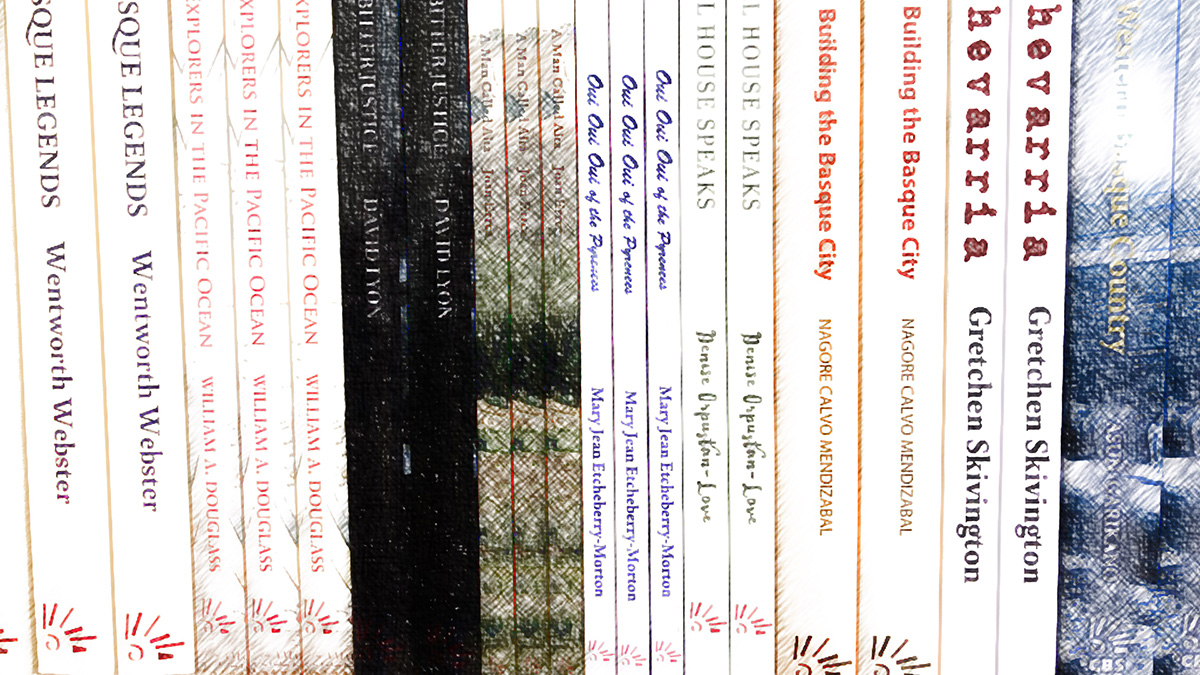 SQUE LEGENDS Wentworth Webster
SQUE LEGENDS Wentworth Webster
EXPLORERS IN THE PACIFIC OCEAN WILLIAM A. DOUGLASS
EXPLORERS IN THE PACIFIC OCEAN WILLIAM A. DOUGLASS
EXPLORERS IN THE PACIFIC OCEAN WILLIAM A. DOUGLASS
BITTER JUSTICE DAVID LYON
BITTER JUSTICE DAVID LYON
A Man Called Aita Joan Errea
A Man Called Aita Joan Errea
A Man Called Aita Joan Errea
Oui Oui Oui of the Pyrenees Mary Jean Etcheberry-Morton
Oui Oui Oui of the Pyrenees Mary Jean Etcheberry-Morton
Oui Oui Oui of the Pyrenees Mary Jean Etcheberry-Morton
L HOUSE SPEAKS Denise Orpustan-Love
L HOUSE SPEAKS Denise Orpustan-Love
Building the Basque City NAGORE CALVO MENDIZABAL
Building the Basque City NAGORE CALVO MENDIZABAL
hevarria Gretchen Skivington
hevarria Gretchen Skivington
Basque Country
CBS